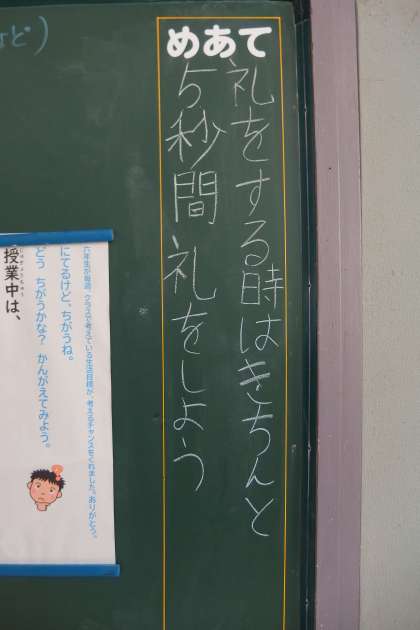 めあて
礼をする時はきちんと
5秒間礼をしよう
など)
六年生が毎週、クラスで考えている生活目標が、考えるチャンスをくれました。ありがとう。
にてるけど、ちがうね。
どう ちがうかな? かんがえてみよう。
授業中は、
じゅぎょうちゅう